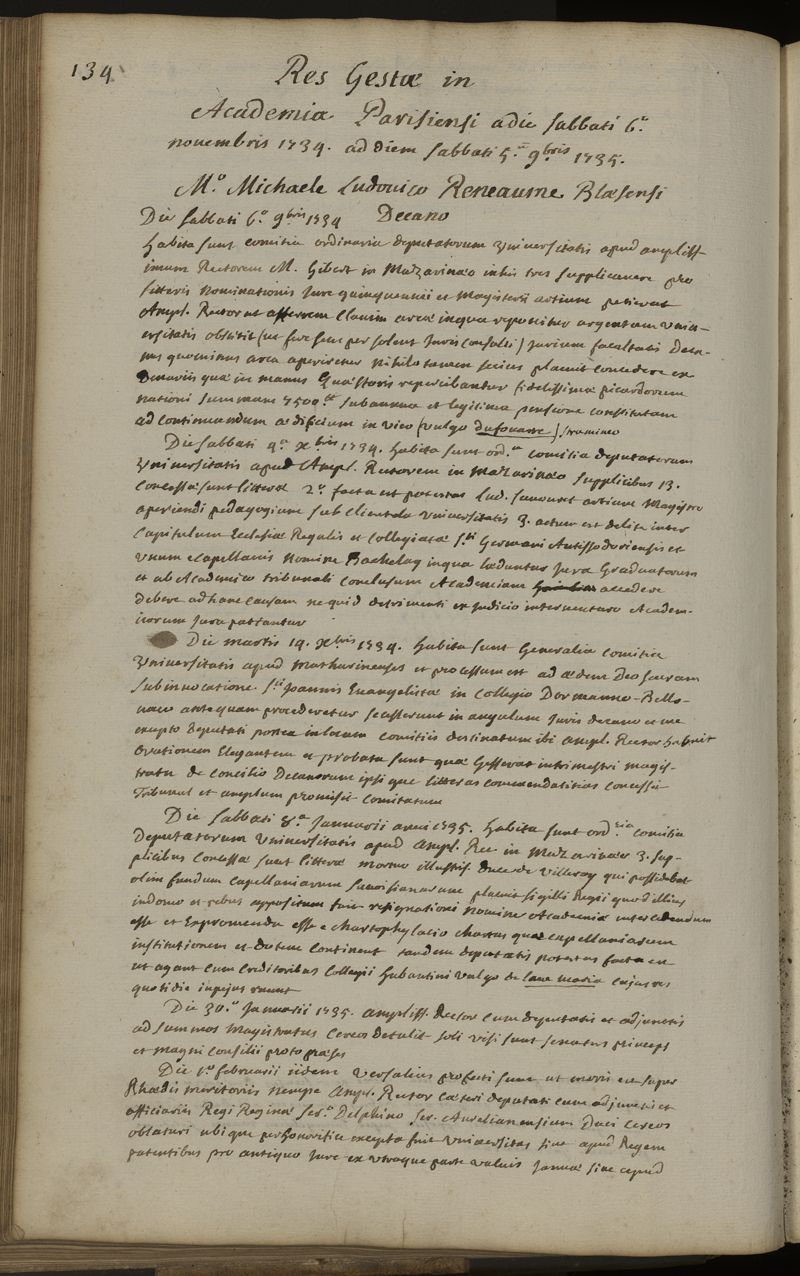 134
Res Gestæ in
Academia Parisiensi a die sabbati 6ª
novembris 1734. ad diem sabbati 5ª 9bris 1735.
M.º Michaele Ludovico Reneaume Blæsensi
Decano
Die sabbati 6ª 9bris 1734
habita sunt comitia ordinaria deputatorum Universitatis apud ampliss-
imum Rectorem M. Gibert in Mazarinæo in his tres supplicavere pro
litteris nominationis jure quinquennii et magisterii artium petierat
Ampl. Rector ut afferrem clavim arcæ in qua reponitur argentum univ-
ersitatis obstitit (ut fere semper solent juris consulti) jurium facultatis Deca-
nus quominus arca aperiretur nihilo tamen secius placuit concedere ex
denariis quæ in manus quæstoris reperibantur fidelissimæ picardorum
nationi summam 7500 sub annua et legitima pensione constitutam
ad continuandum ædificium in vico (vulgo dufouarre) stramineo
Die sabbati 4ª xbris 1734. habita sunt ord.ª comitia deputatorum
Universitatis apud Ampl. Rectorem in Mazarinæo supplicibus 13.
concessæ sunt litteræ 2º facta est potestas Lud. artium magistro
aperiendi pedagogium sub clientela universitatis 3. actum est de lite inter
capitulum Ecclesiæ Regalis et collegiatæ S.ti Germani Autissodorensis et
unum e capellanis nomine Bachelay in qua læduntur jura Graduatorum
et ab Academico tribunali conclusum Academiam accedere
debere ad hanc causam ne quid detrimenti ex judicio interventuro Academ-
icorum jura patiantur
Die martis 14. xbris 1734. habita sunt Generalia comitia
Universitatis apud Mathurinenses et processum est ad ædem Deo sacram
sub invocatione S.ti Joannis Evangelistæ in collegio Dormanno-Bello-
vaco antequam procederetur secesserunt in angulum juris decano et me
excepto deputati postea in locum comitiis destinatum ibi ampl. Rector habuit
Orationem Elegantem et probata sunt quæ Gesserat in trimestri magis-
tratu de concilio Decanorum ipsique litteras commendatitias concessit
Tribunal et amplum promisit comitatum
Die sabbati 8ª Januarii anni 1735. habita sunt ordria comitia
Deputatorum Universitatis apud Ampl. Rec in Mazarinæo 3. sup-
plicibus concessæ sunt litteræ mortuo illustriss. Duce de Villeroy qui possidebat
olim fundum capellaniarum placuit sigilli Regii quod illius
in domo et rebus appositum fuit resignationi nomine Academiæ intercedendum
esse et Expromenda esse e chartophylacio chartas quæ capellaniarum
institutionem et dotem continent tandem deputatis potestas facta est
ut agant cum creditoribus collegii Hubantini vulgo de lave maria cujus res
quotidie in pejus ruunt
Die 30.ª Januarii 1735. ampliss. Rector cum deputatis et adjunctis
ad summos magistratus cereos detulit soli visi sunt senatus princeps
et magni consilii protopræses
Die 1ª februarii iidem Versalias profecti sunt ut moris est super
Rhædis meritoriis nempe Ampl. Rector cæteri deputati cum adjunctis et
officiariis Regi Reginæ Ser.º Delphino Ser. Aurelianensium Duci cereos
oblaturi ubique perhonorifice excepta fuit Universitas sive apud Regem
patentibus pro antiquo jure ex utraque parte valvis januæ sive apud